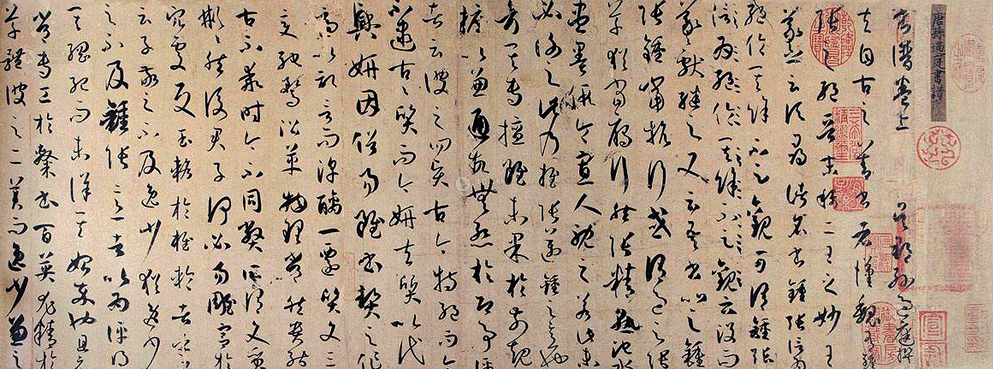 唐孫過庭書譜
書譜卷上 吳郡孫過庭撰
夫自古之善書者漢魏有鍾
張之絕晉末稱二王之妙王
羲之云頃尋諸名書鍾張信為
絕倫其餘不足觀可謂鍾張
云沒而
羲獻繼之又云吾書比之鍾
張鍾當抗行或謂過之張
草猶當雁行然張精熟池水
盡墨假令寡人耽之若此未
必謝之此乃推張邁鍾之意也
考其專擅雖未果於前規
摭以兼通故無慚於即事評
者云彼之四賢古今特絕而今
不逮古古質而今妍夫質以代
興妍因俗易雖書契之作
適以記言而淳醨一遷質文三
變馳騖沿革物理常然貴能
古不乖時今不同弊所謂文質
彬彬然後君子何必易雕宮於
穴處反玉輅於椎輪者乎又
云子敬之不及逸少猶逸少
之不及鍾張意者以為評得
其綱紀而未詳其始卒也且元
常專工於隸書百英尤精於
草體彼之二美而逸少兼之